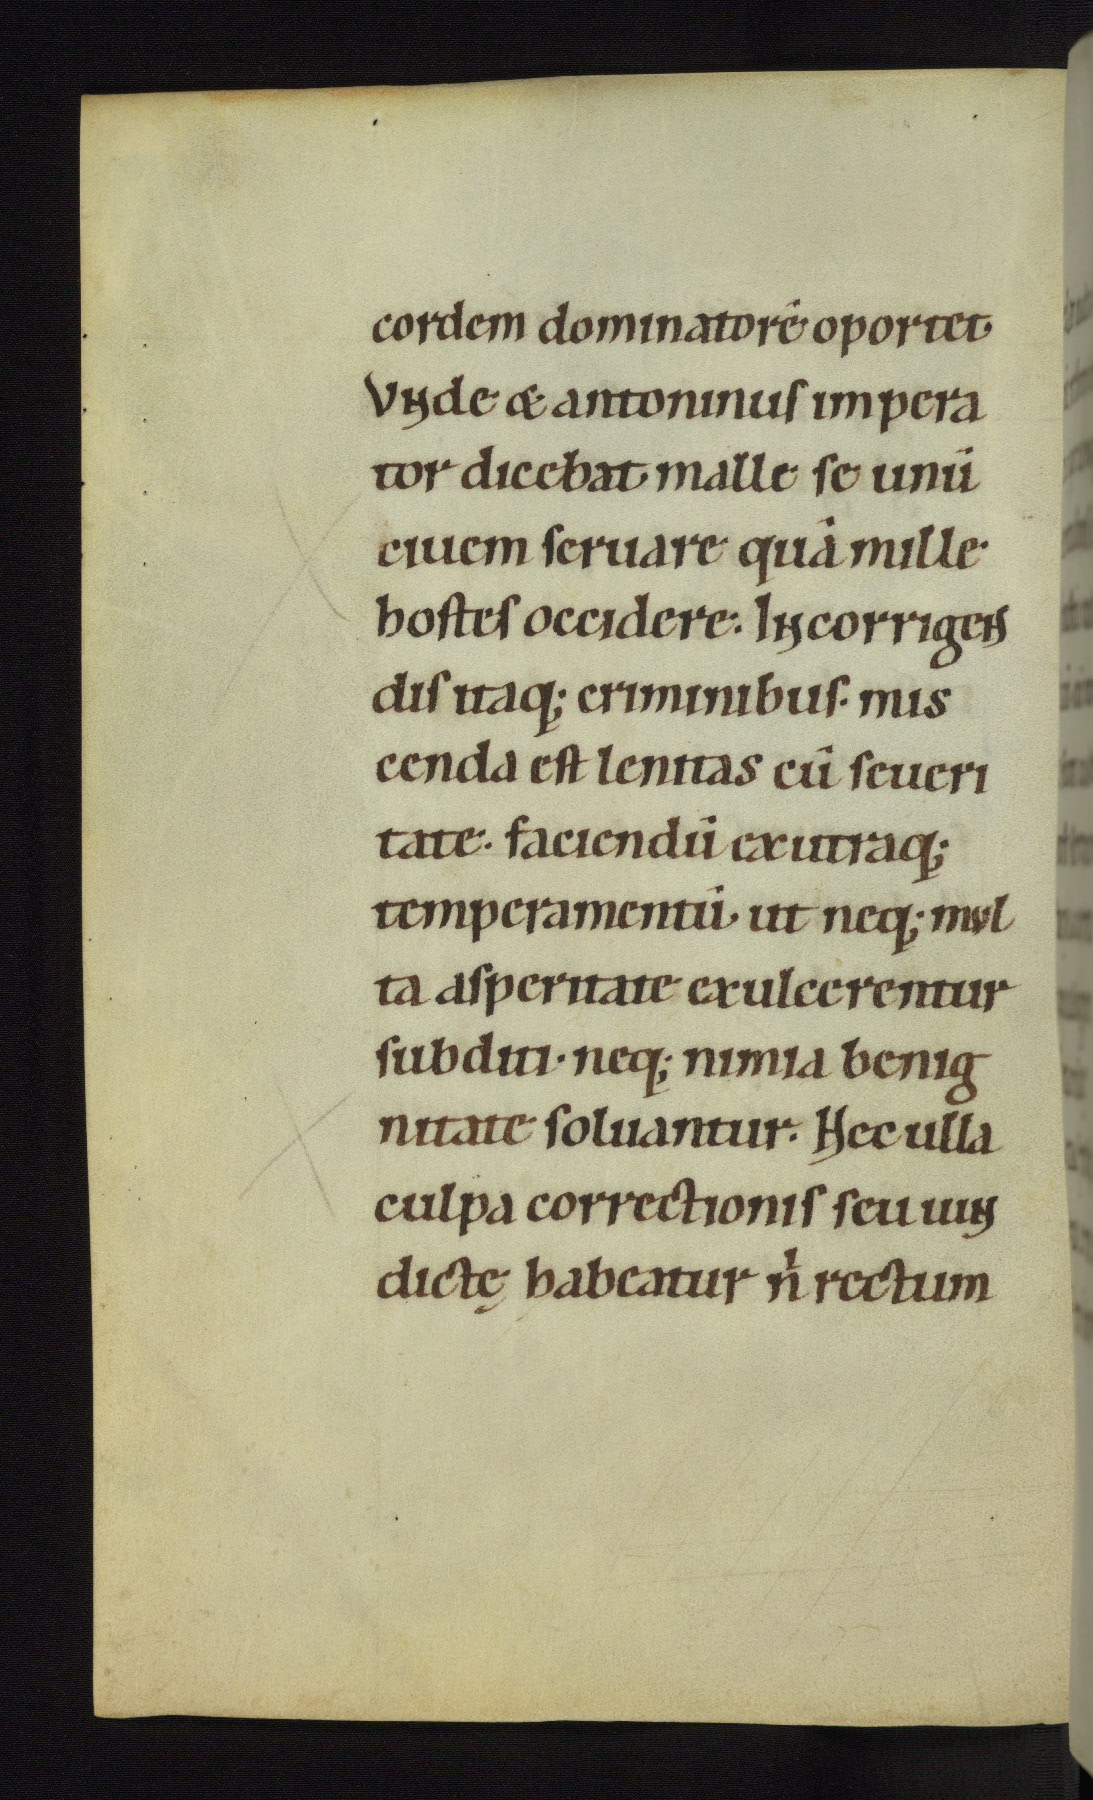 cordem dominatorē oportet
Vnde & antoninus impera
tor dicebat malle se unū
ciuem seruare quā mille
hostes occidere. In corrigen
dis itaq; criminibus. mis
cenda est lenitas cū seueri
tate. faciendū ex utraq;
temperamentū. ut neq; mul
ta asperitate exulcerentur
subditi. neq; nimia benig
nitate soluantur. Nec ulla
culpa correctionis seu uin
dictę habeatur n̄ rectum